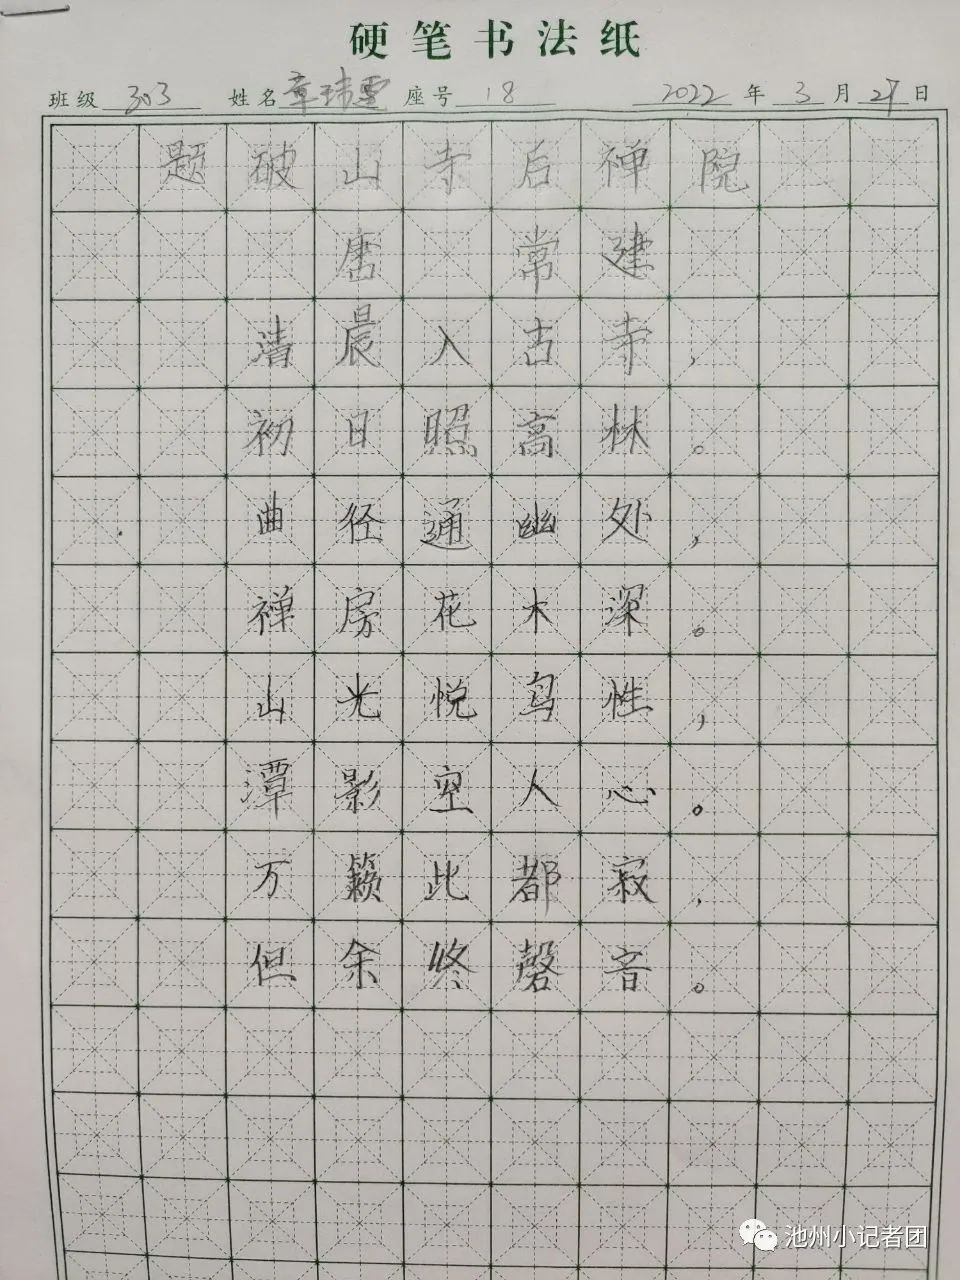 硬笔书法纸
班级 303 姓名 章玮雯 座号 18 2022 年 3 月 27 日
题破山寺后禅院
唐 常建
清晨入古寺，
初日照高林。
曲径通幽处，
禅房花木深。
山光悦鸟性，
潭影空人心。
万籁此都寂，
但余终磬音。
池州小记者团